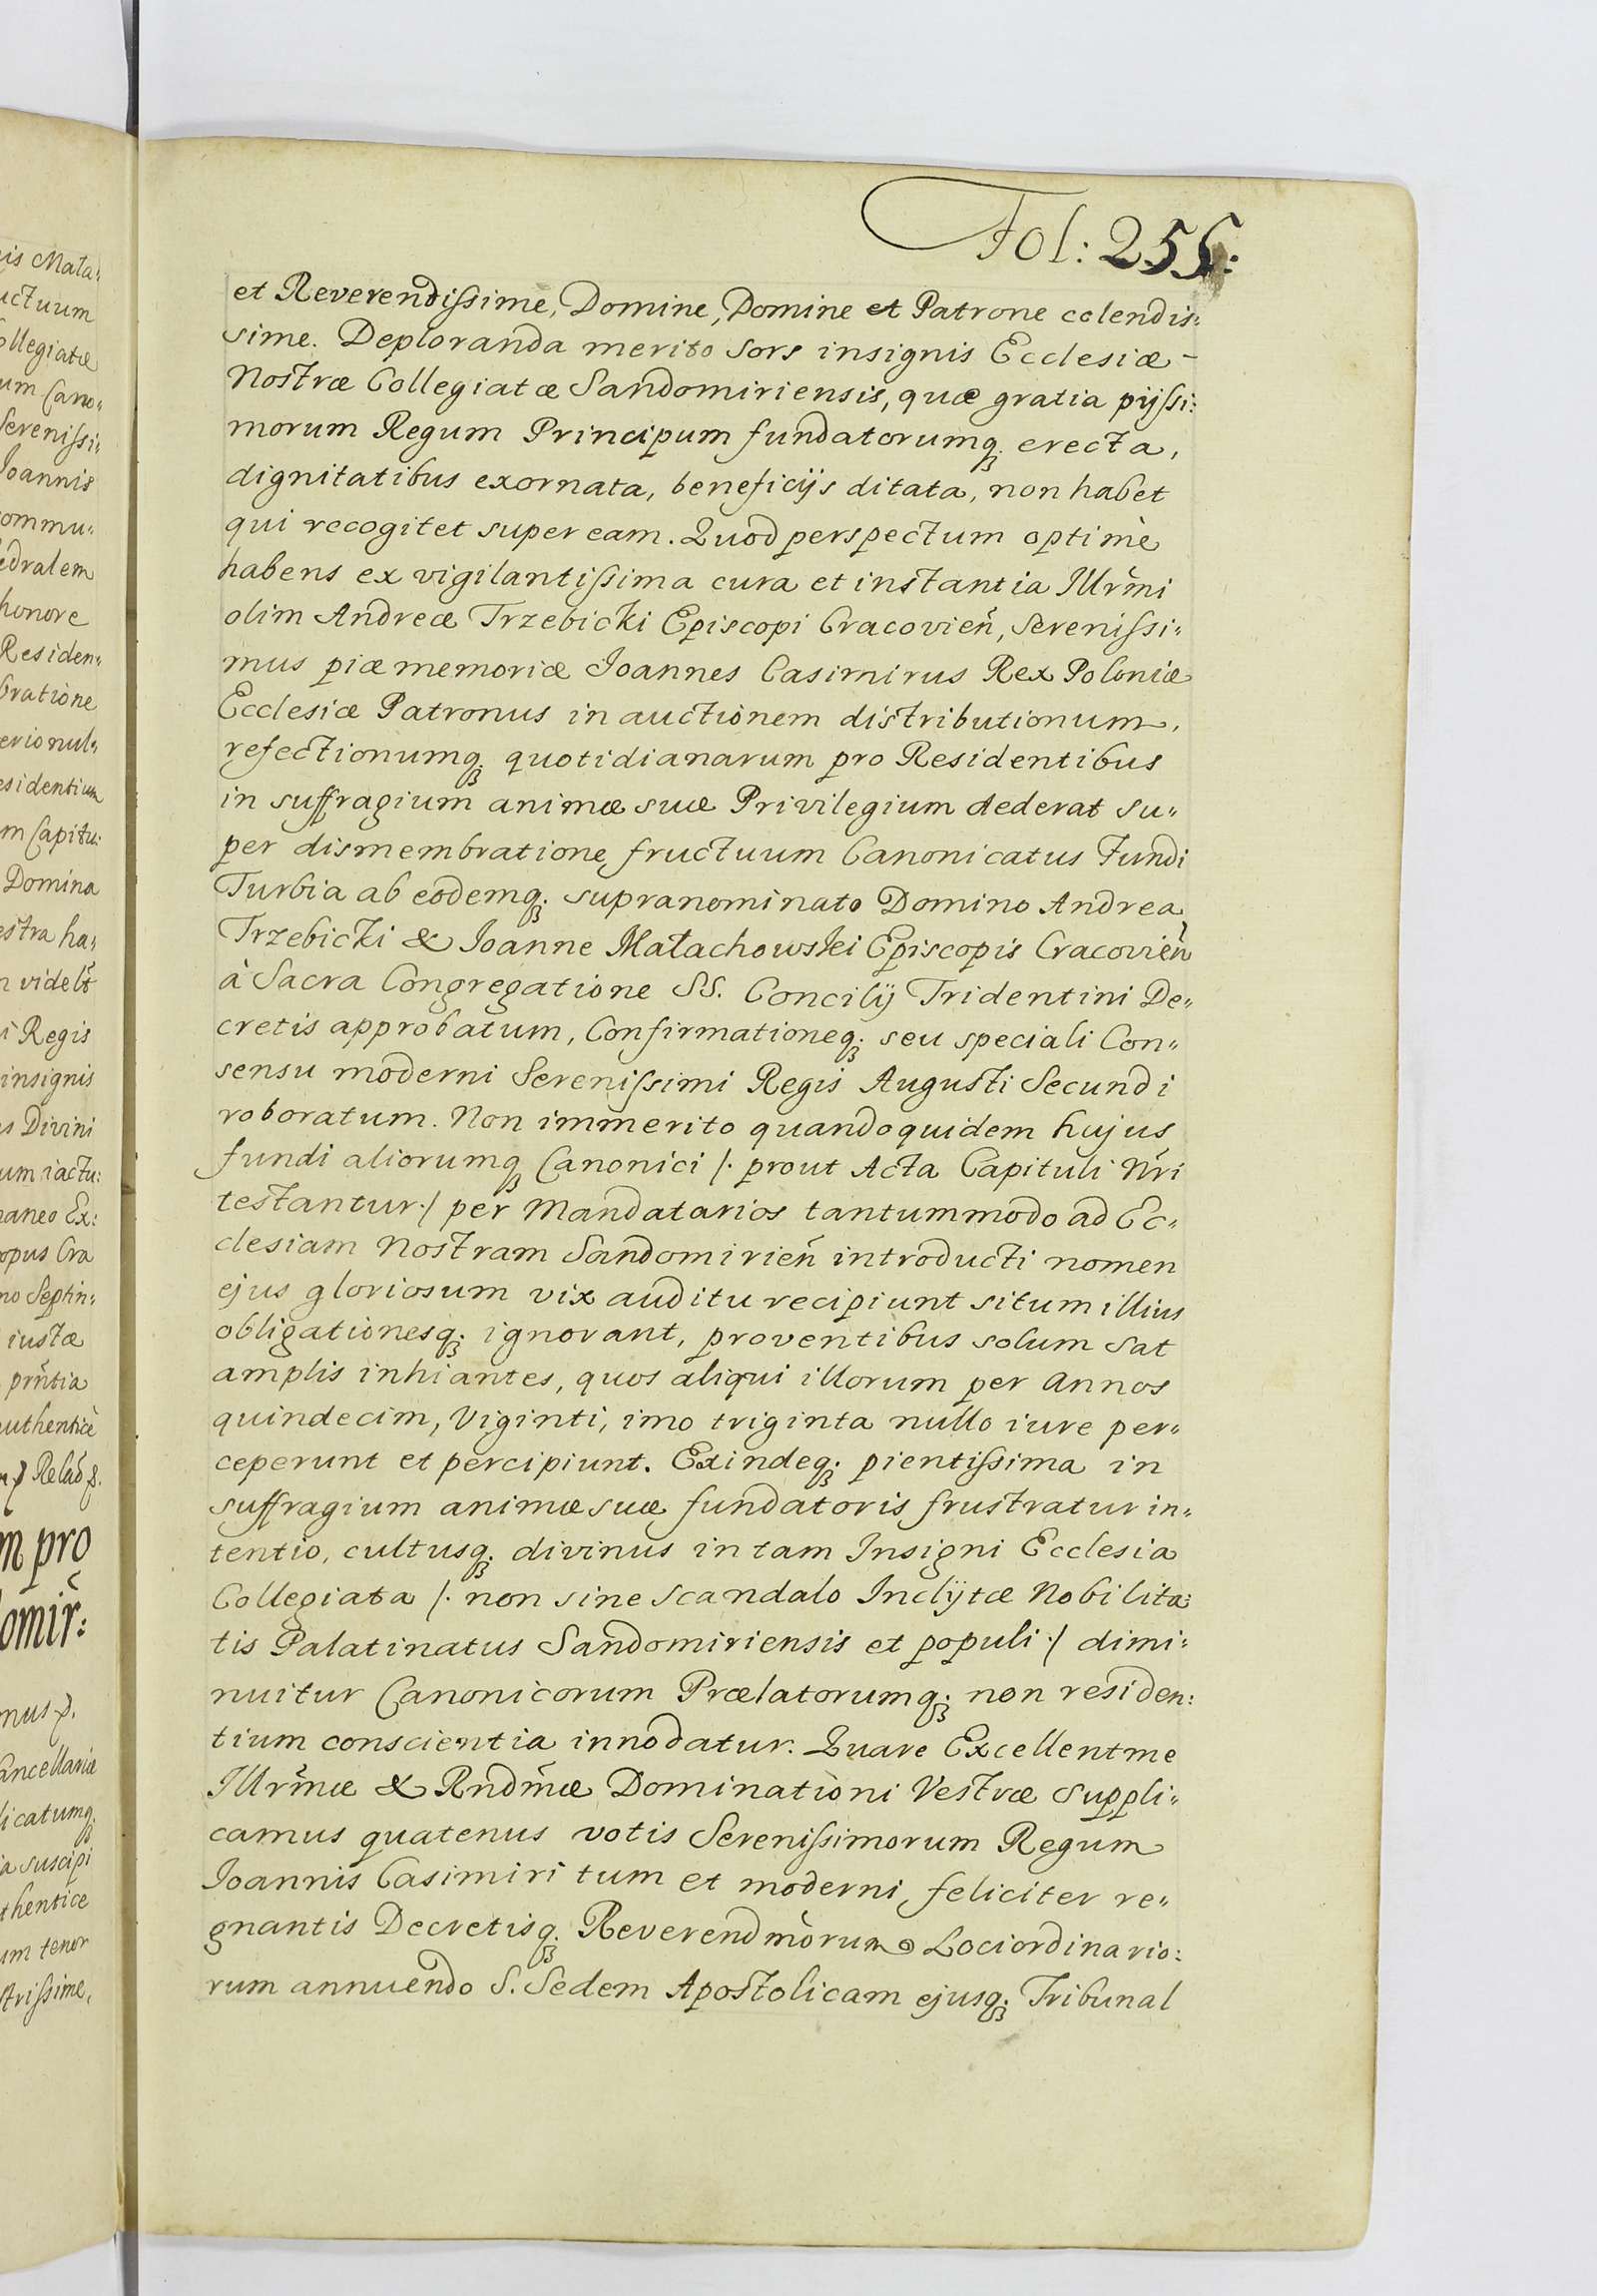 Fol: 255:
et Reverendissime, Domine, Domine et Patrone colendis:
sime. Deploranda merito sors insignis Ecclesiæ -
Nostræ Collegiatæ Sandomiriensis, quæ gratia pijssi:
morum Regum Principum fundatorumq; erecta,
dignitatibus exornata, beneficijs ditata, non habet
qui recogitet super eam. Quod perspectum optimè
habens ex vigilantissima cura et instantia Illr̃mi
olim Andreæ Trzebicki Episcopi Cracovien̄, Serenissi„
mus piæ memoriæ Joannes Casimirus Rex Poloniæ
Ecclesiæ Patronus in auctionem distributionum,
refectionumq; quotidianarum pro Residentibus
in suffragium animæ suæ Privilegium dederat su„
per dismembratione fructuum Canonicatus Fundi
Turbia ab eodemq; supranominato Domino Andrea
Trzebicki & Joanne Małachowski Episcopis Cracovien̄
à Sacra Congregatione SS. Concilij Tridentini De„
cretis approbatum, Confirmationeq; seu speciali Con„
sensu moderni Serenissimi Regis Augusti Secundi
roboratum. Non immerito quandoquidem hujus
fundi aliorumq; Canonici /. prout Acta Capituli Nr̃i
testantur./ per Mandatarios tantummodo ad Ec„
clesiam Nostram Sandomirien̄ introducti nomen
ejus gloriosum vix auditu recipiunt situm illius
obligationesq; ignorant, proventibus solum sat
amplis inhiantes, quos aliqui illorum per Annos
quindecim, Viginti, imo triginta nullo iure per„
ceperunt et percipiunt. Exindeq; pientissima in
suffragium animæ suæ fundatoris frustratur in„
tentio, cultusq; divinus in tam Insigni Ecclesia
Collegiata /. non sine scandalo Inclÿtæ Nobilita:
tis Palatinatus Sandomiriensis et populi ./ dimi„
nuitur Canonicorum Prælatorumq; non residen:
tium conscientia innodatur. Quare Excellentme
Illr̃mæ & Rndm̃æ Dominationi Vestræ suppli„
camus quatenus votis Serenissimorum Regum
Joannis Casimiri tum et moderni, feliciter re„
gnantis Decretisq; Reverendm̃orum Lociordinario:
rum annuendo S. Sedem Apostolicam ejusq; Tribunal